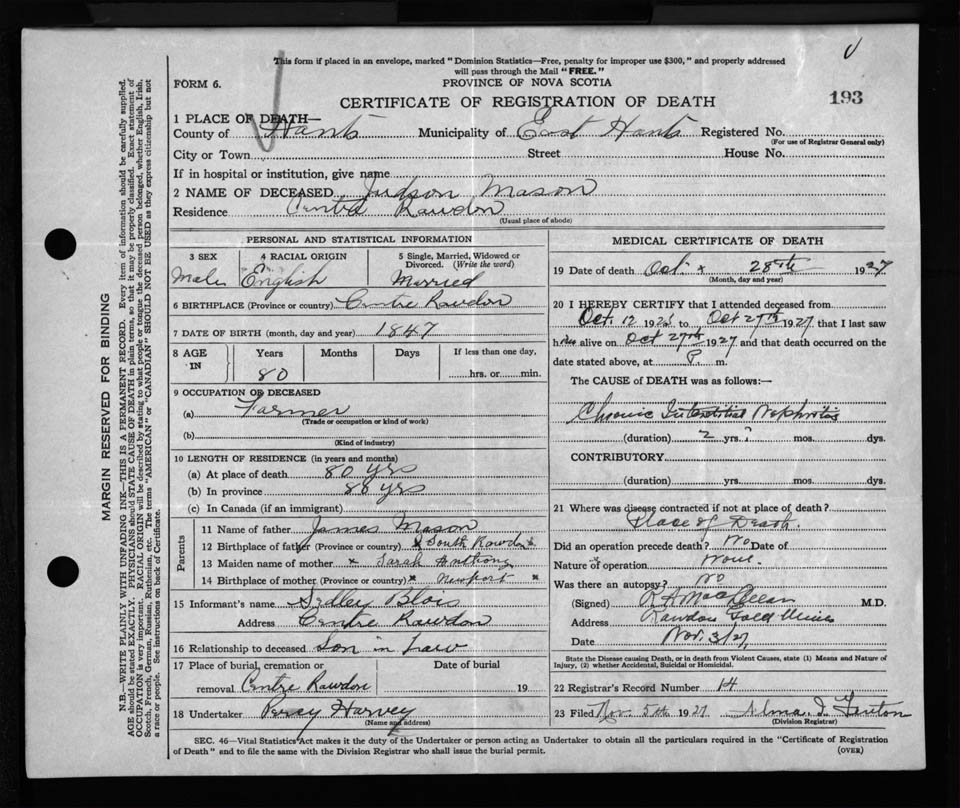 This form if placed in an envelope, marked "Dominion Statistics—Free, penalty for improper use $300," and properly addressed
will pass through the Mail "FREE."
FORM 6.
PROVINCE OF NOVA SCOTIA
CERTIFICATE OF REGISTRATION OF DEATH
193
1 PLACE OF DEATH—
County of Hants Municipality of East Hants Registered No.
(For use of Registrar General only)
City or Town Street House No.
If in hospital or institution, give name
2 NAME OF DECEASED Judson Mason
Residence Central Rawdon
(Usual place of abode)
MARGIN RESERVED FOR BINDING
N.B.—WRITE PLAINLY WITH UNFADING INK—THIS IS A PERMANENT RECORD. Every item of information should be carefully supplied.
AGE should be stated EXACTLY. PHYSICIANS should STATE CAUSE OF DEATH in plain terms, so that it may be properly classified. Exact statement of
OCCUPATION is very important. RACIAL ORIGIN will be described by stating to what people or tongue the deceased person belonged, whether English, Irish,
Scotch, French, German, Russian, Ruthenian, etc. The terms "AMERICAN" or "CANADIAN" SHOULD NOT BE USED as they express citizenship but not
a race or people. See instructions on back of Certificate.
PERSONAL AND STATISTICAL INFORMATION
3 SEX 4 RACIAL ORIGIN 5 Single, Married, Widowed or
Divorced. (Write the word)
Male English Married
6 BIRTHPLACE (Province or country) Centre Rawdon
7 DATE OF BIRTH (month, day and year) 1847
8 AGE IN Years Months Days If less than one day,
80 hrs. or min.
9 OCCUPATION OF DECEASED
(a) Farmer
(Trade or occupation or kind of work)
(b)
(Kind of industry)
10 LENGTH OF RESIDENCE (in years and months)
(a) At place of death 80 yrs
(b) In province 80 yrs
(c) In Canada (if an immigrant)
Parents
11 Name of father James Mason
12 Birthplace of father (Province or country) x South Rawdon x
13 Maiden name of mother x Sarah Anthony
14 Birthplace of mother (Province or country) x Newport x
15 Informant's name Sidley Blois
Address Centre Rawdon
16 Relationship to deceased Son in Law
17 Place of burial, cremation or Date of burial
removal Centre Rawdon 19
18 Undertaker Percy Harvey
(Name and address)
MEDICAL CERTIFICATE OF DEATH
19 Date of death Oct. x 28th 1927
(Month, day and year)
20 I HEREBY CERTIFY that I attended deceased from
Oct. 12 1925 to Oct 27th 1927 that I last saw
him alive on Oct 27th 1927 and that death occurred on the
date stated above, at P. m.
The CAUSE of DEATH was as follows:—
Chronic Interstitial Nephritis
(duration) 2 yrs.? mos. dys.
CONTRIBUTORY
(duration) yrs. mos. dys.
21 Where was disease contracted if not at place of death?
Place of Death.
Did an operation precede death? No Date of
Nature of operation None
Was there an autopsy? No
(Signed) R A MacLellan M.D.
Address Rawdon Gold Mines
Date Nov. 3/27
State the Disease causing Death, or in death from Violent Causes, state (1) Means and Nature of
Injury, (2) whether Accidental, Suicidal or Homicidal.
22 Registrar's Record Number 14
23 Filed Nov. 5th 1927 Alma J. Fenton
(Division Registrar)
SEC. 46—Vital Statistics Act makes it the duty of the Undertaker or person acting as Undertaker to obtain all the particulars required in the "Certificate of Registration
of Death" and to file the same with the Division Registrar who shall issue the burial permit.
(OVER)